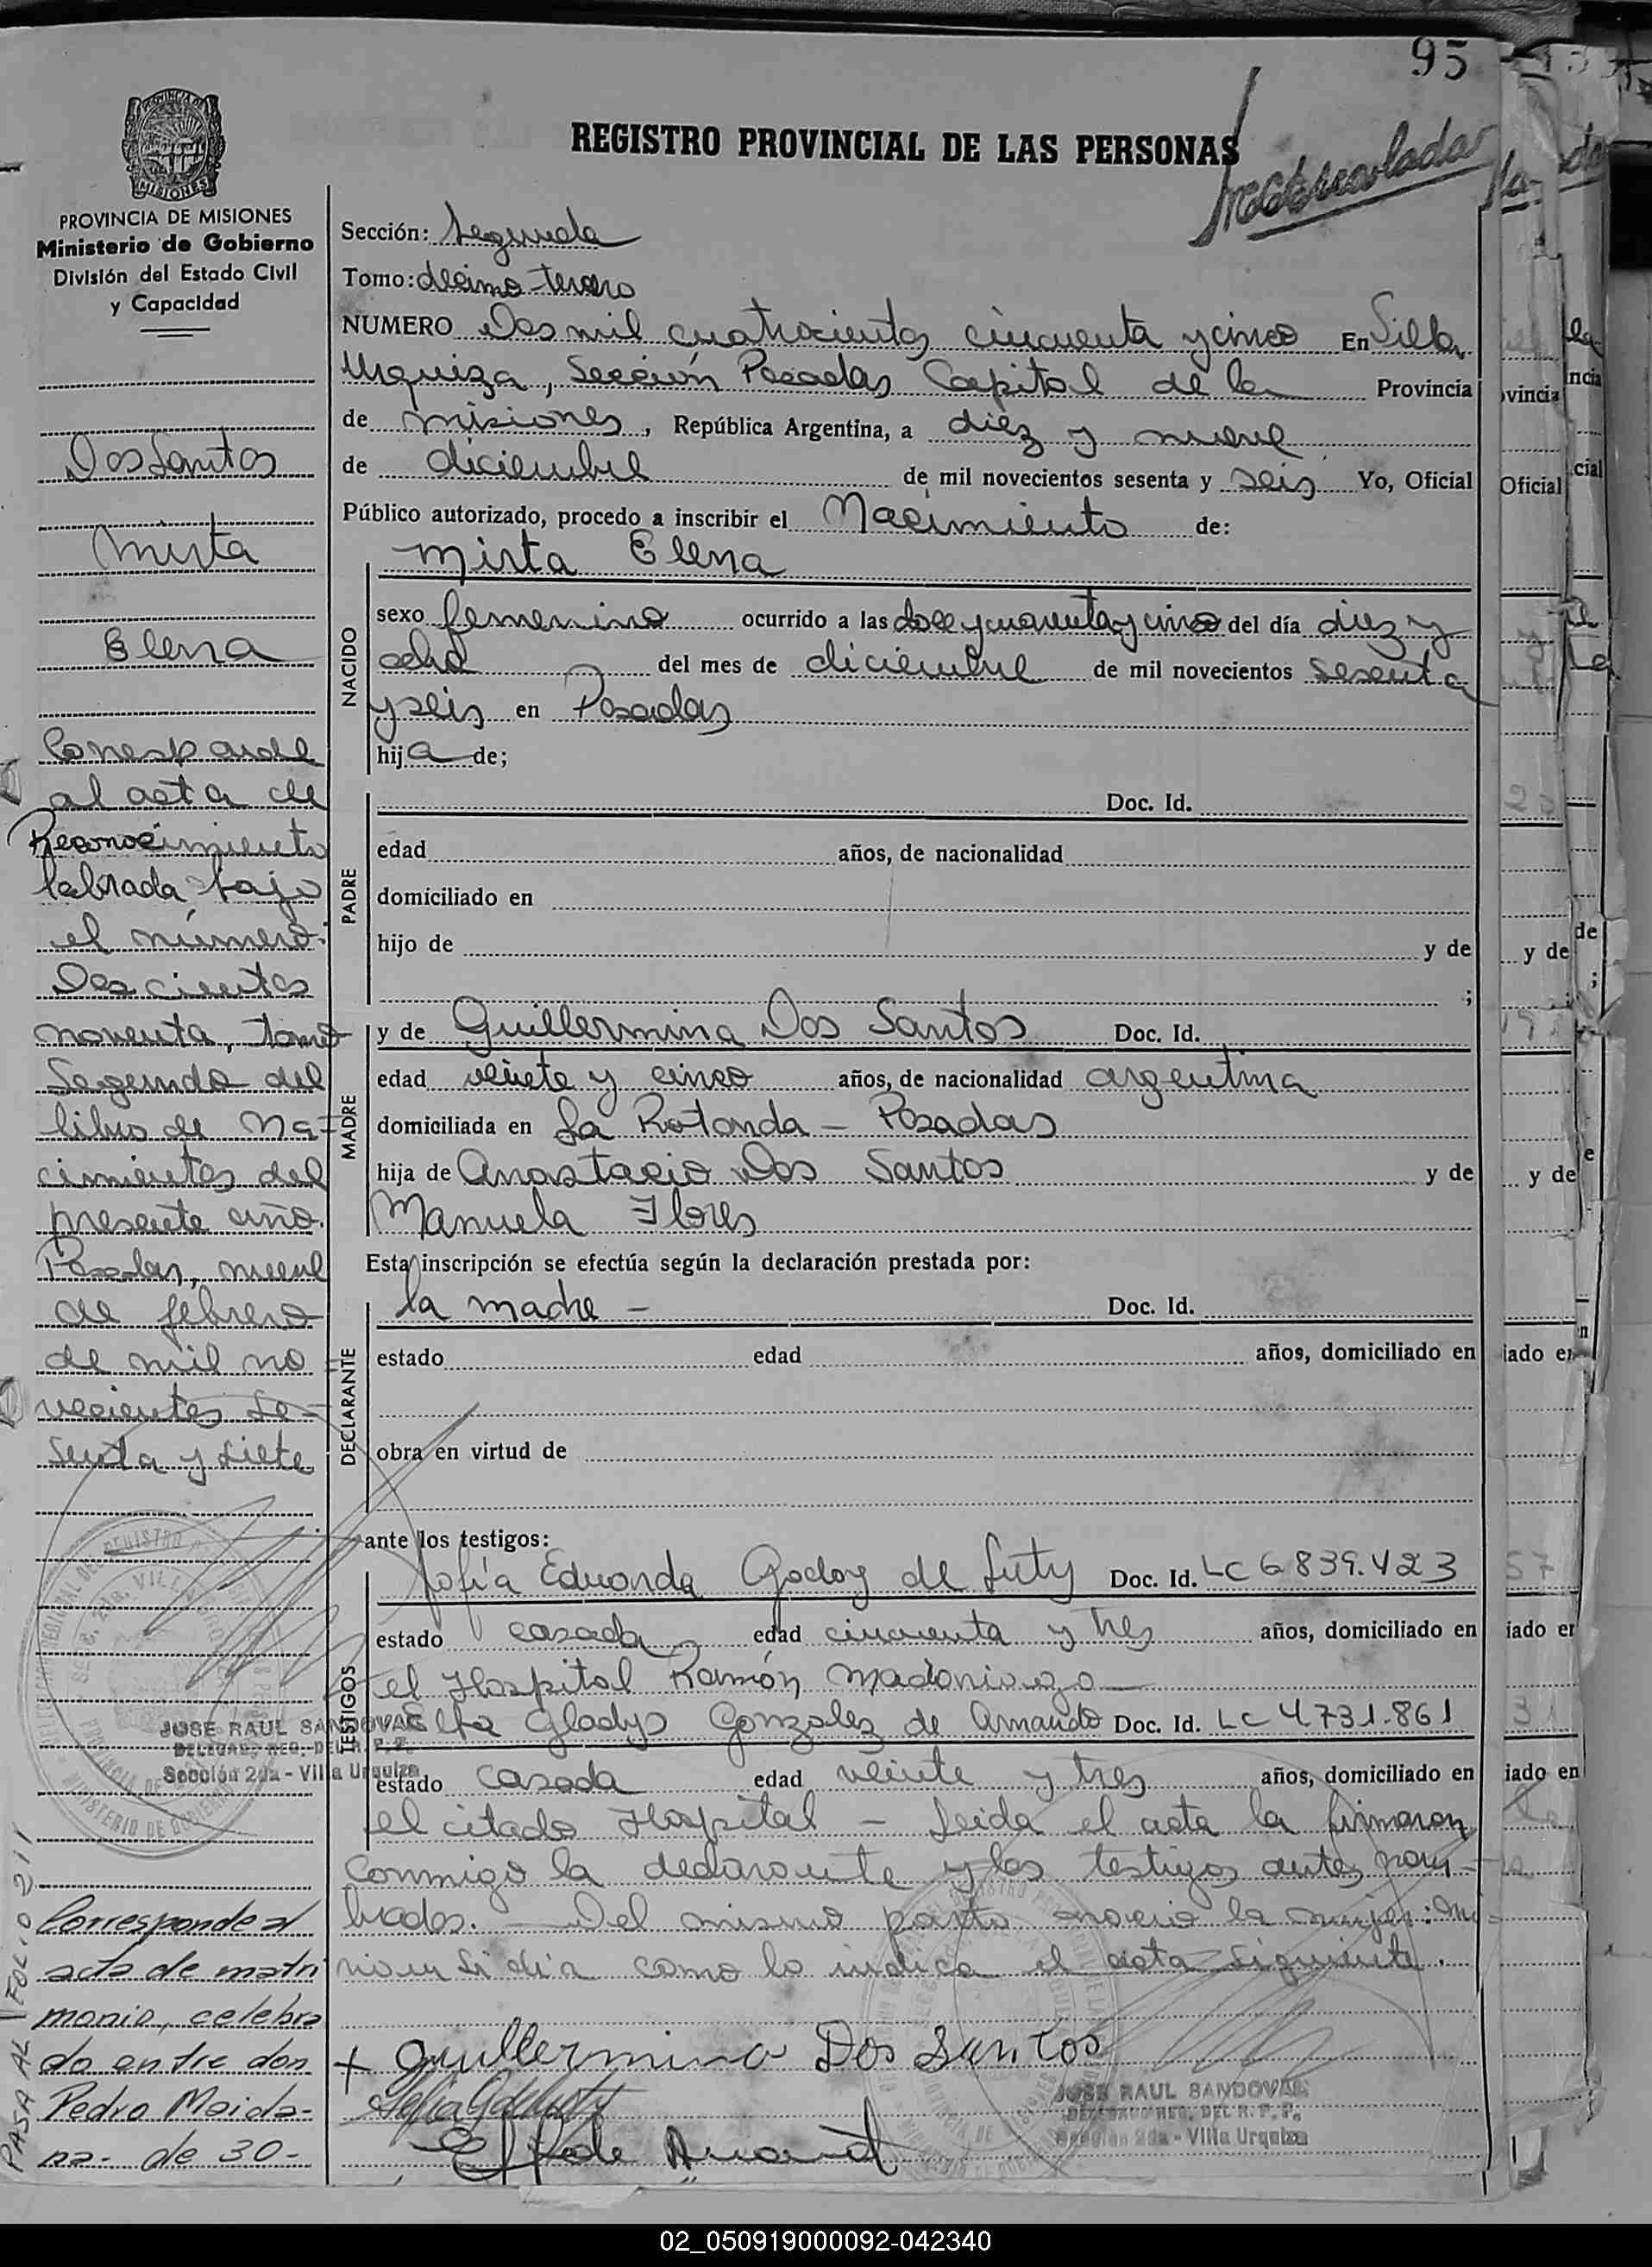 95
REGISTRO PROVINCIAL DE LAS PERSONAS
PROVINCIA DE MISIONES
Ministerio de Gobierno
División del Estado Civil
y Capacidad
Dos Santos
Mirta
Elena
Corresponde
al acta de
Reconocimiento
labrada bajo
el número:
Doscientos
noventa, tomo
Segundo del
libro de Na-
cimientos del
presente año.
Posadas, nueve
de febrero
de mil no-
vecientos se-
senta y siete
JOSE RAUL SANDOVAL
DELEGADO REG. DEL R. P. P.
Sección 2da - Villa Urquiza
PASA AL FOLIO 211
Corresponde al
acta de matri
monio, celebra
do entre don
Pedro Maida-
na- de 30-
Sección: Segunda
Tomo: décimo tercero
NUMERO Dos mil cuatrocientos cincuenta y cinco En Villa
Urquiza, Sección Posadas Capital de la Provincia
de misiones, República Argentina, a diez y nueve
de diciembre de mil novecientos sesenta y seis Yo, Oficial
Público autorizado, procedo a inscribir el Nacimiento de:
Mirta Elena
NACIDO
sexo femenino ocurrido a las doce y cuarenta y cinco del día diez y
ocho del mes de diciembre de mil novecientos sesenta
y seis en Posadas
hija de;
PADRE
Doc. Id.
edad años, de nacionalidad
domiciliado en
hijo de y de
;
MADRE
y de Guillermina Dos Santos Doc. Id.
edad veinte y cinco años, de nacionalidad argentina
domiciliada en La Rotonda - Posadas
hija de Anastacio Dos Santos y de
Manuela Flores
Esta inscripción se efectúa según la declaración prestada por:
DECLARANTE
la madre - Doc. Id.
estado edad años, domiciliado en
obra en virtud de
ante los testigos:
TESTIGOS
Sofía Eduarda Godoy de Luty Doc. Id. LC 6839.423
estado casada edad cincuenta y tres años, domiciliado en
el Hospital Ramón Madariaga
Elfa Gladys Gonzalez de Amando Doc. Id. LC 4731.861
estado casada edad veinte y tres años, domiciliado en
el citado Hospital - Leida el acta la firmaron
conmigo la declarante y los testigos antes nom-
brados. - Del mismo parto nació la mujer:
como lo indica el acta siguiente.
+ Guillermina Dos Santos
JOSE RAUL SANDOVAL
DELEGADO REG. DEL R. P. P.
Sección 2da - Villa Urquiza
02_050919000092-042340